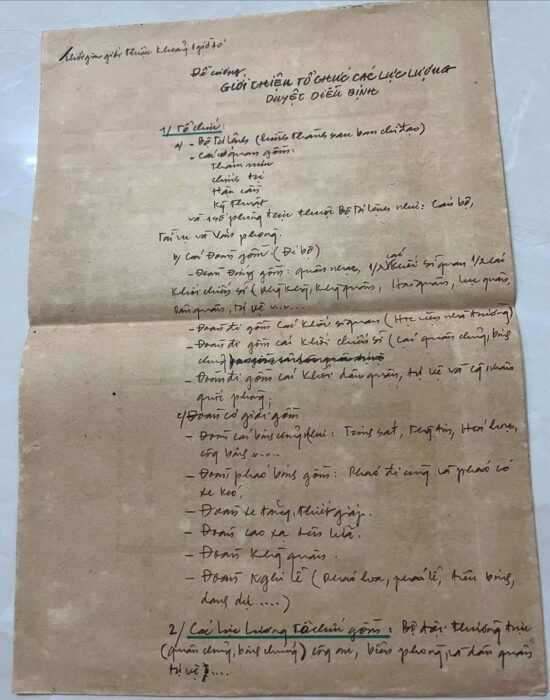 Thời gian giới thiệu khoảng 1 giờ 30'
Đề cương
GIỚI THIỆU TỔ CHỨC CÁC LỰC LƯỢNG
DUYỆT DIỄU BINH
1/ Tổ chức:
a/ - Bộ Tư lệnh (cùng tham sau ban chỉ đạo)
- Các cơ quan gồm:
Tham mưu
Chính trị
Hậu cần
Kỹ thuật
và 1 số phòng trực thuộc Bộ Tư lệnh như: Cán bộ,
Tài vụ và Văn phòng.
b/ Các Đoàn gồm: (Đi bộ)
- Đoàn Đứng gồm: quân nhạc, 1/2 các khối sĩ quan 1/2 các
khối chiến sĩ (Không quân, Hải quân, Lục quân,
dân quân, tự vệ v.v...
- Đoàn đi gồm các khối sĩ quan (Học viện nhà trường)
- Đoàn đi gồm các khối chiến sĩ (các quân chủng, binh
chủng)
- Đoàn đi gồm các khối dân quân, tự vệ và công nhân
quốc phòng;
c/ Đoàn cơ giới gồm
- Đoàn các binh chủng như: Trinh sát, Thông tin, Hoá học,
công binh v.v....
- Đoàn pháo binh gồm: Pháo đi cùng và pháo có
xe kéo.
- Đoàn xe tăng, thiết giáp.
- Đoàn cao xạ tên lửa.
- Đoàn Không quân.
- Đoàn Nghi lễ (pháo hoa, pháo lễ, tiêu binh,
danh dự ....)
2/ Các lực lượng tổ chức gồm: Bộ đội thường trực
(quân chủng, binh chủng) công an, biên phòng, và dân quân
tự vệ ....